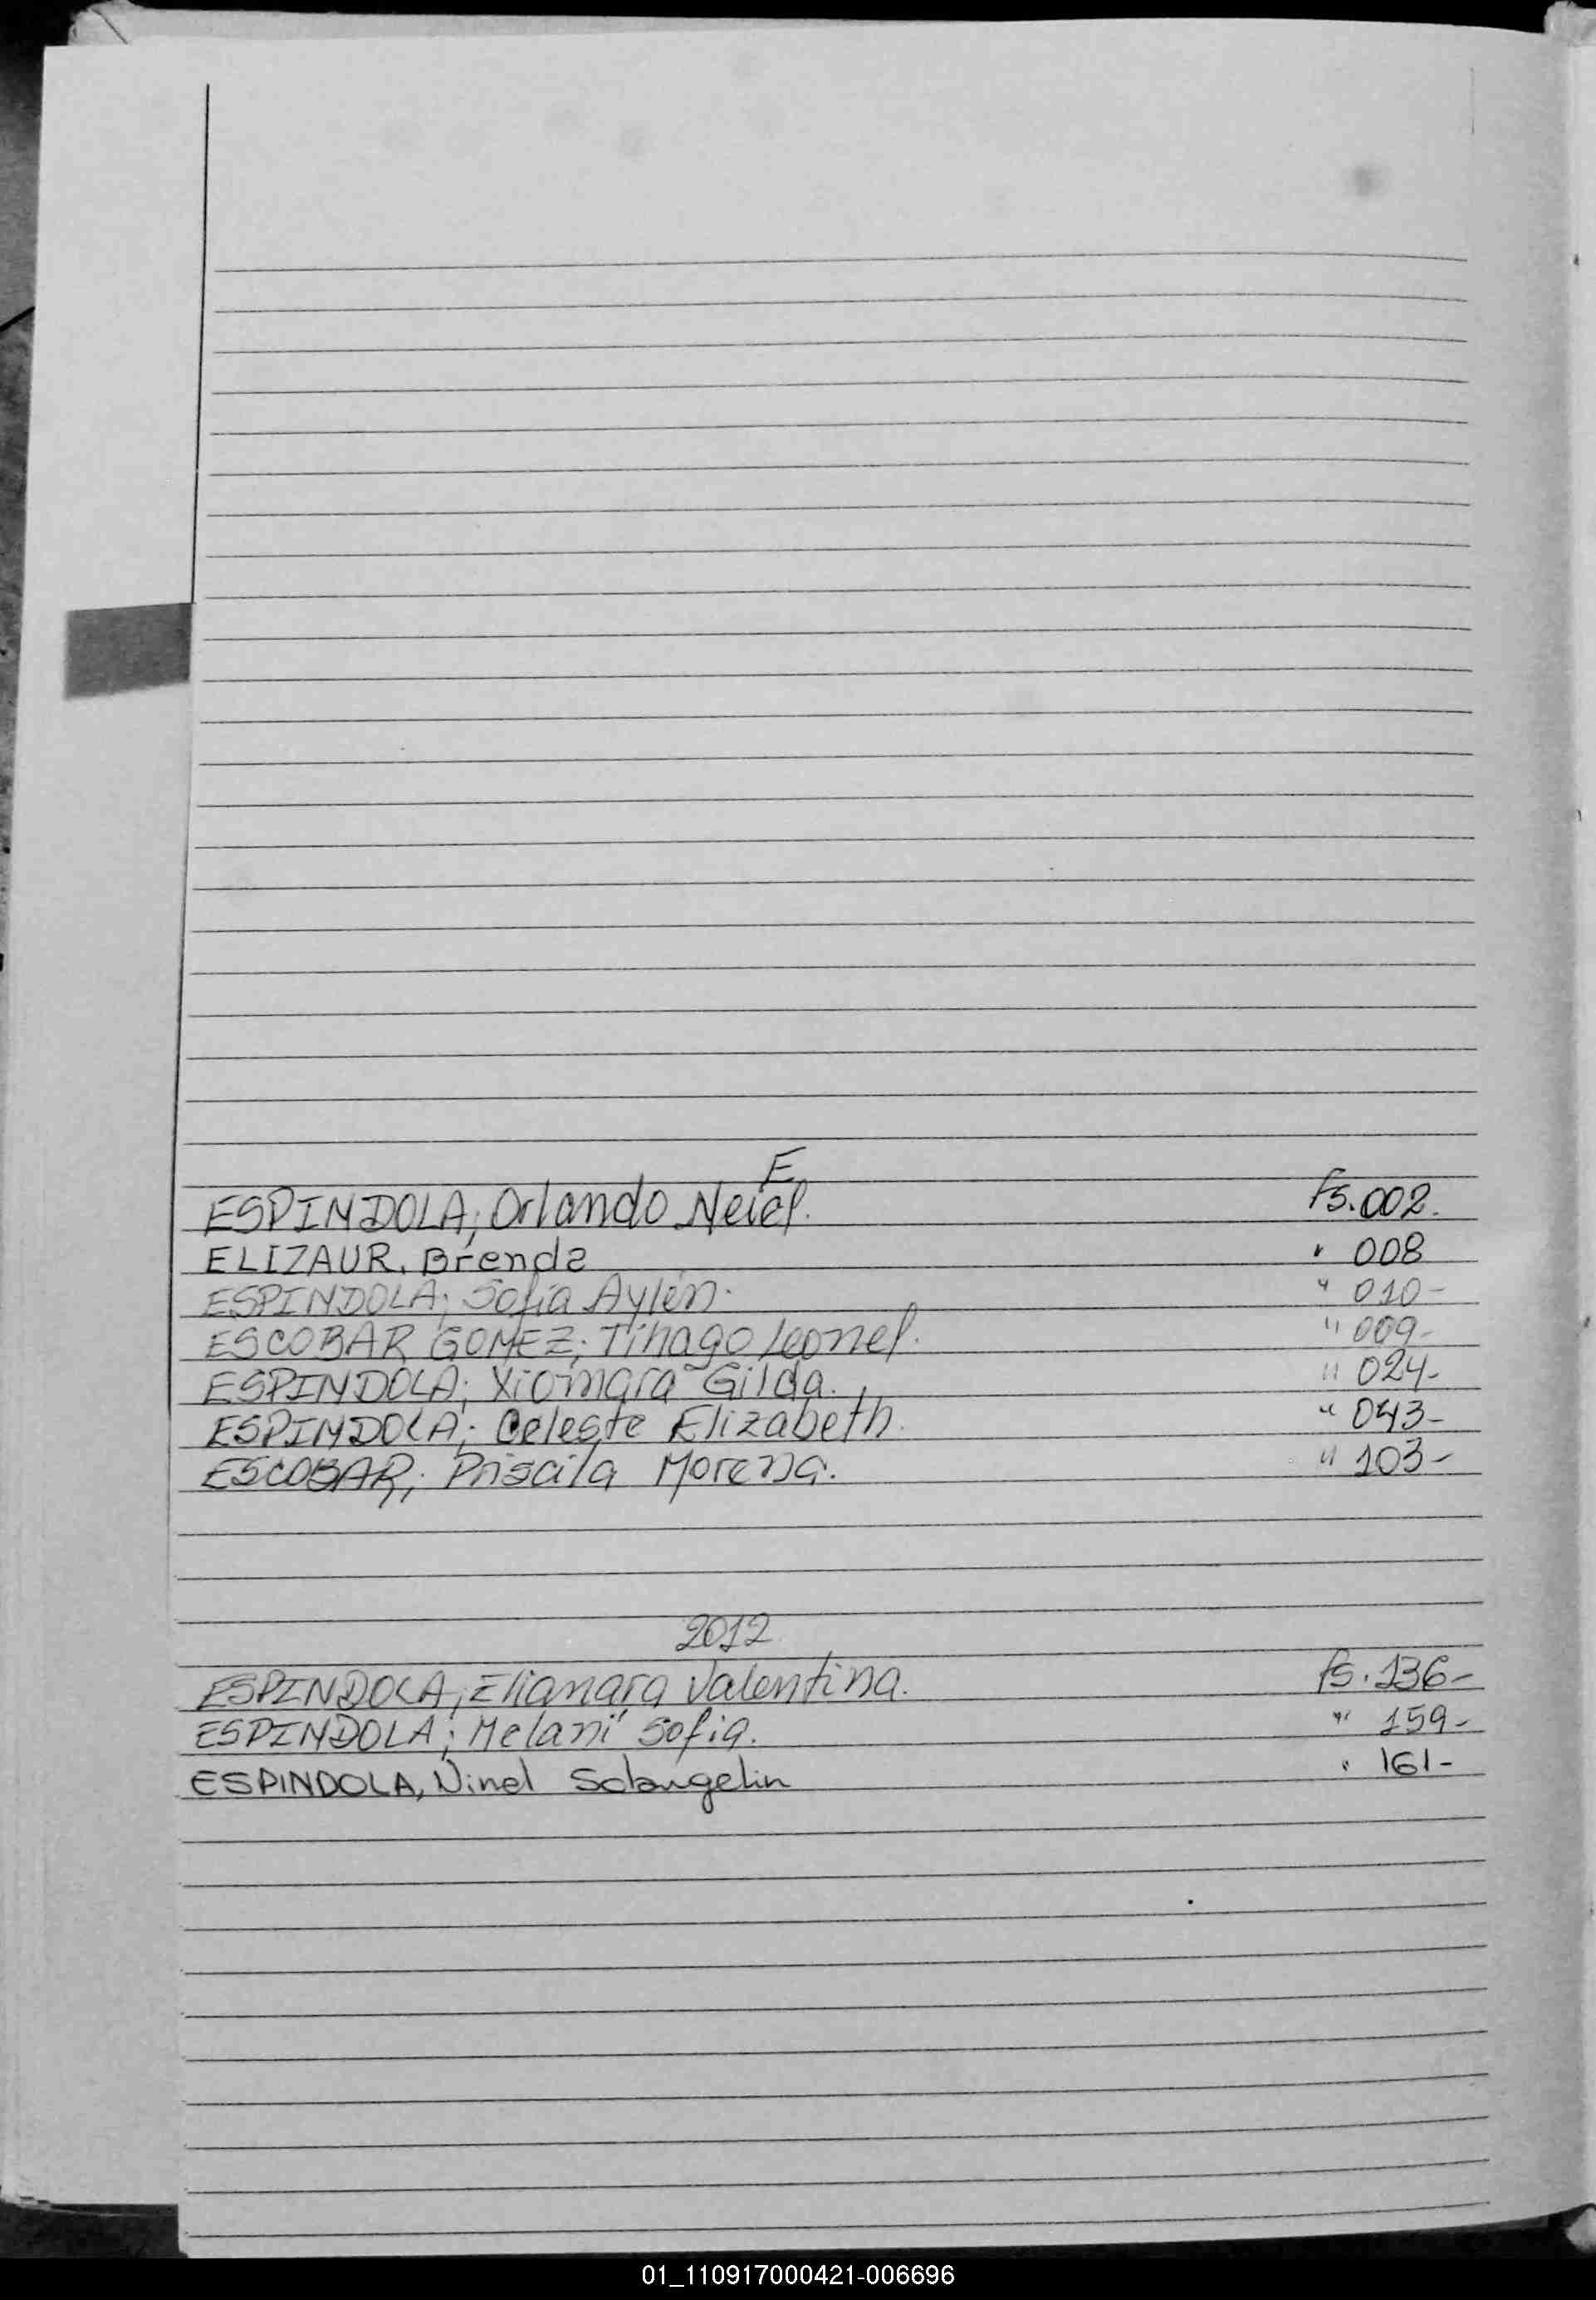 E
ESPINDOLA; Orlando Neiel. fs. 002.
ELIZAUR, Brenda " 008
ESPINDOLA; Sofía Aylén. " 010-
ESCOBAR GOMEZ; Tihago Leonel. " 009-
ESPINDOLA; Xiomara Gilda. " 024-
ESPINDOLA; Celeste Elizabeth. " 043-
ESCOBAR; Priscila Morena. " 103-
2012
ESPINDOLA; Elianara Valentina. fs. 136-
ESPINDOLA; Melani Sofia. " 159-
ESPINDOLA, Ninel Solangelin " 161-
01_110917000421-006696